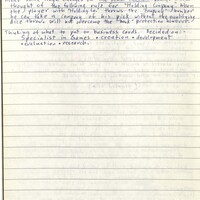 thought of the following rule for "Holding Company" when
the player with "Holding Co." throws the "Company" number
he can take a company of his pick without the qualifying
dice throw. will not overcome the "Bond" protection however.
Thinking of what to put on business cards. Decided on:-
Specialist in Games • creation • development
• evaluation • research.